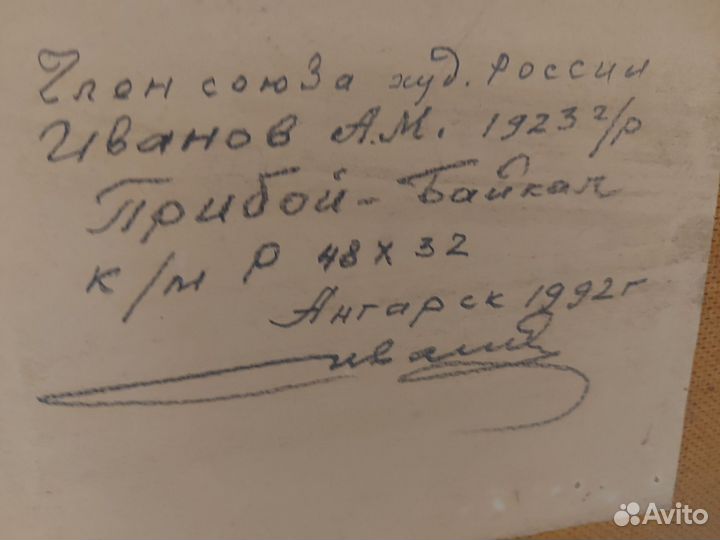 Член союза худ. России
Иванов А.М. 1923 г/р
Прибой - Байкал
к/м р 48 х 32
Ангарск 1992 г
Иванов
Avito